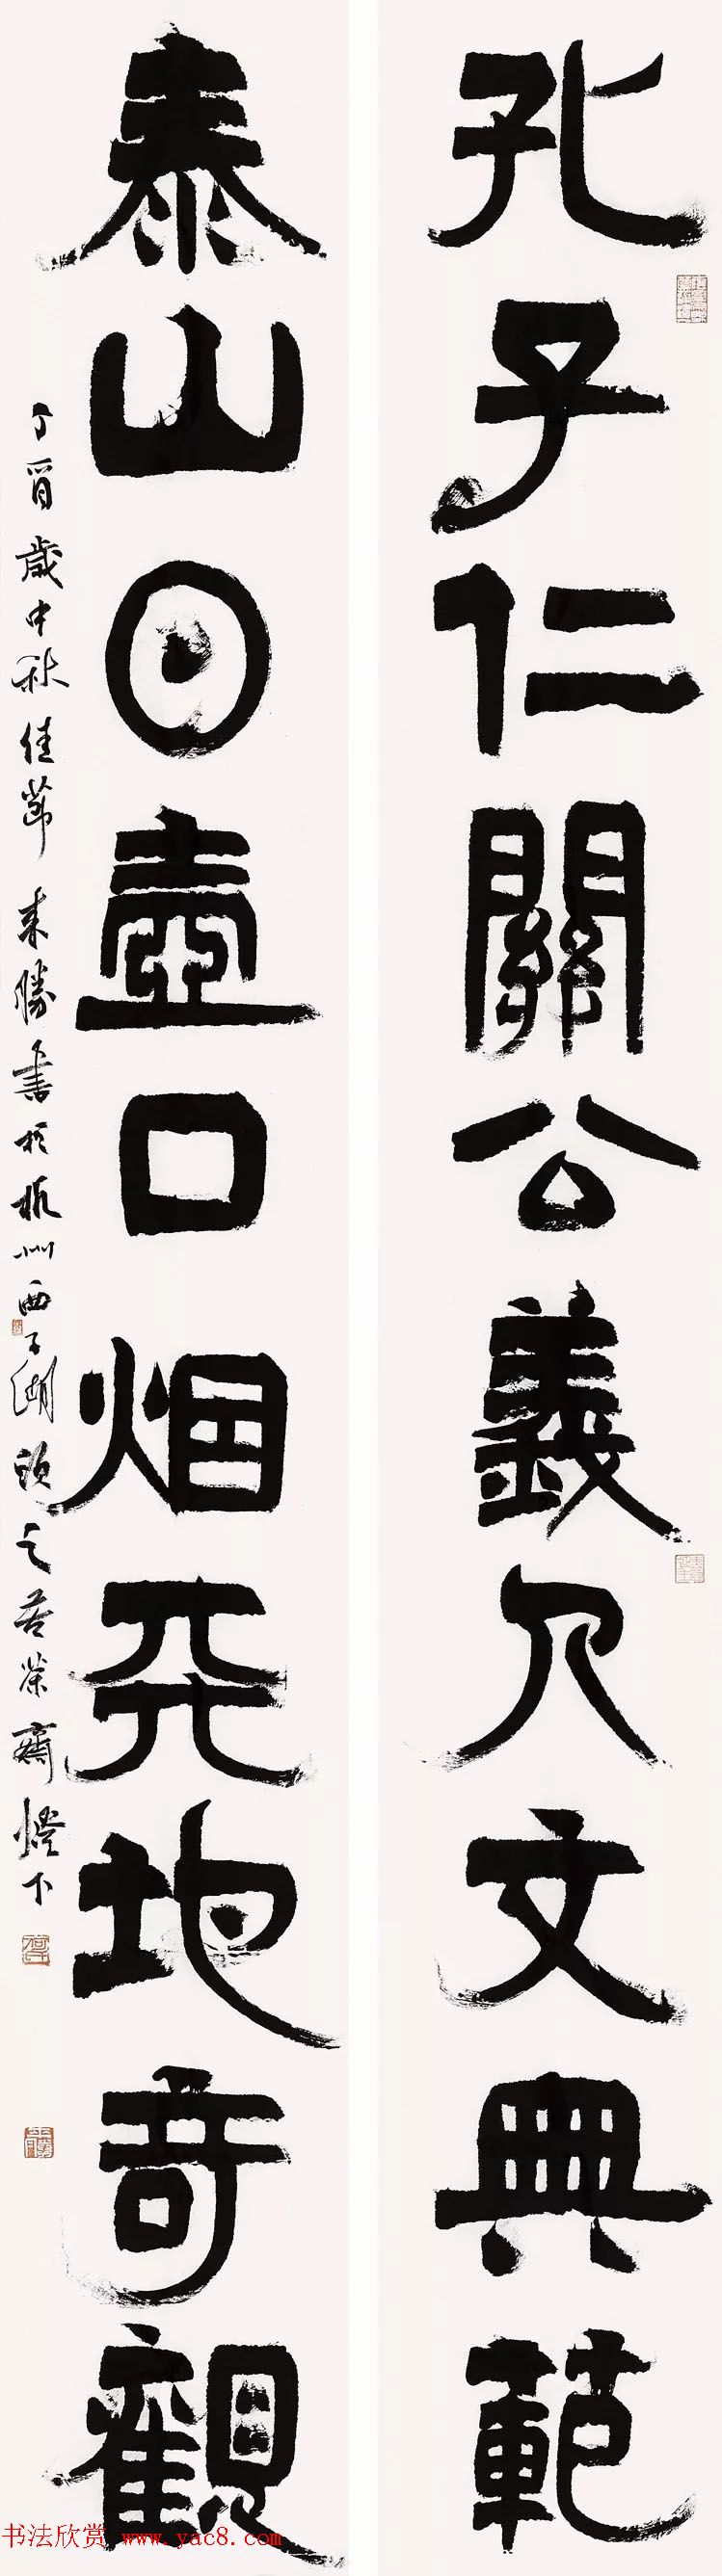 孔子仁關公義人文典範
泰山日壺口烟天地奇觀
丁酉歲中秋佳節來勝書於杭州西子湖頭之若榮齋燈下
书法欣赏 www.yac8.com